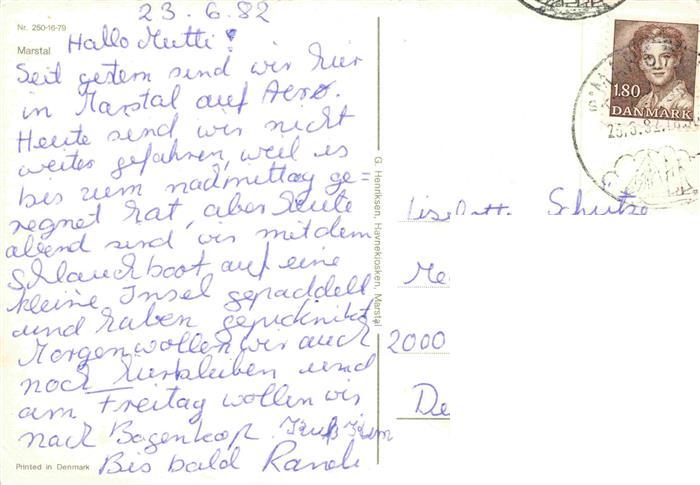 23.6.82
Nr. 250-16-79
Marstal
Hallo Mutti!
Seit gestern sind wir hier
in Marstal auf Aerø.
Heute sind wir nicht
weiter gefahren, weil es
bis zum nachmittag ge=
regnet hat, aber heute
abend sind wir mit dem
Schlauchboot auf eine
kleine Insel gepaddelt
und haben gepicknikt
Morgen wollen wir auch
noch hierbleiben und
am Freitag wollen wir
nach Bagenkop.
Bis bald
Printed in Denmark
G. Henriksen, Havnekiosken, Marstal
1.80
DANMARK
Schutze
2000